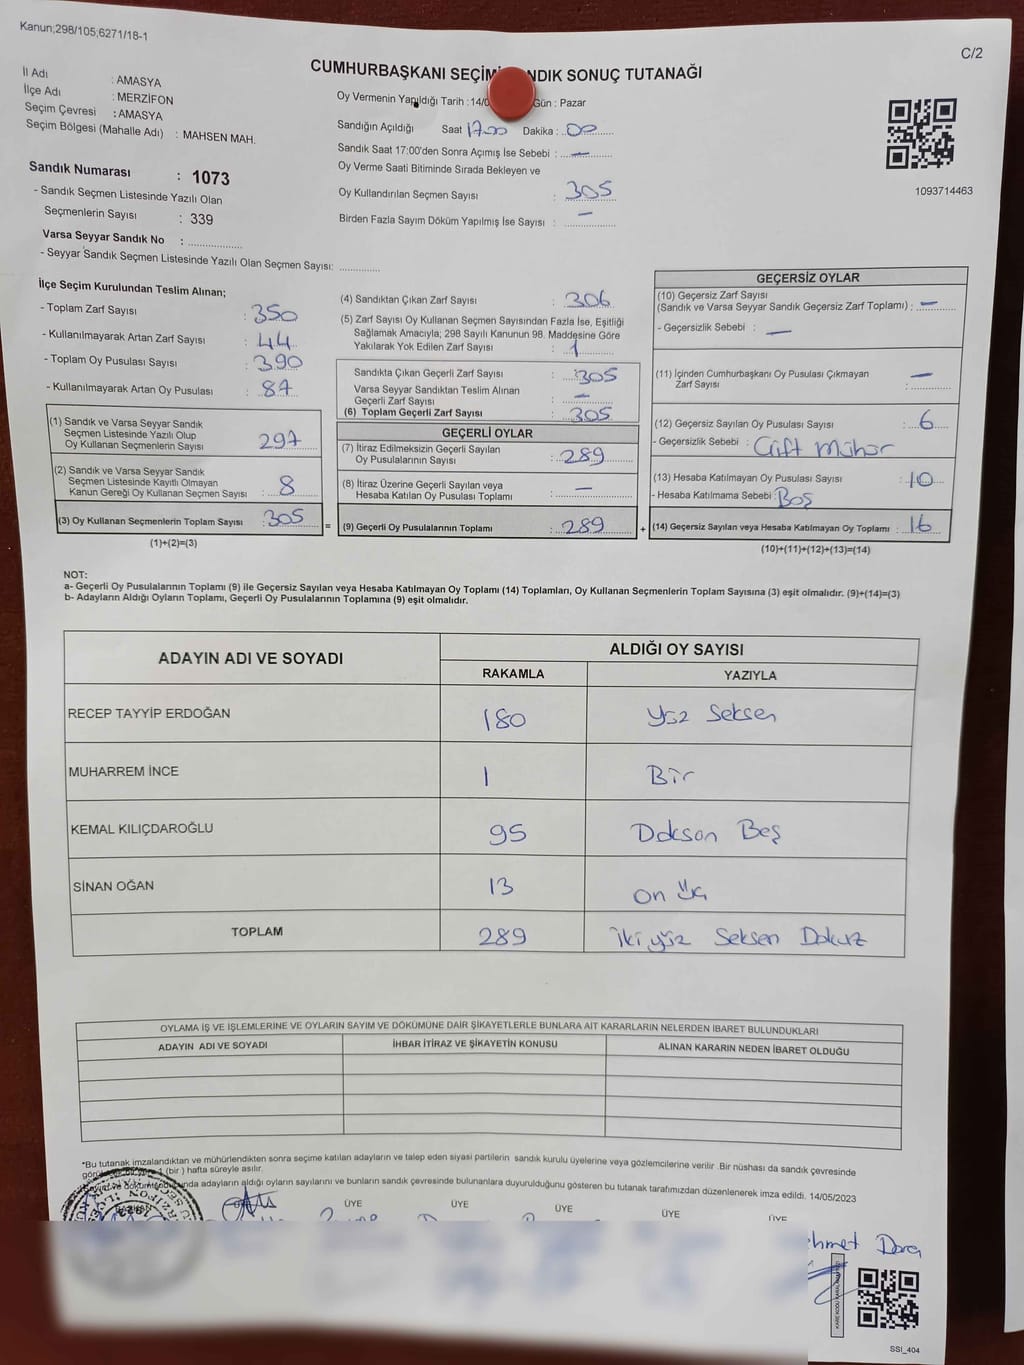 Kanun;298/105;6271/18-1
C/2
CUMHURBAŞKANI SEÇİMİ NDIK SONUÇ TUTANAĞI
İl Adı : AMASYA
İlçe Adı : MERZİFON
Seçim Çevresi : AMASYA
Seçim Bölgesi (Mahalle Adı) : MAHSEN MAH.
Oy Vermenin Yapıldığı Tarih : 14/0 Gün : Pazar
Sandığın Açıldığı Saat 17.00 Dakika : 00
Sandık Saat 17:00'den Sonra Açımış İse Sebebi : —
Oy Verme Saati Bitiminde Sırada Bekleyen ve
Oy Kullandırılan Seçmen Sayısı : 305
Birden Fazla Sayım Döküm Yapılmış İse Sayısı : —
1093714463
Sandık Numarası : 1073
- Sandık Seçmen Listesinde Yazılı Olan
Seçmenlerin Sayısı : 339
Varsa Seyyar Sandık No :
- Seyyar Sandık Seçmen Listesinde Yazılı Olan Seçmen Sayısı:
İlçe Seçim Kurulundan Teslim Alınan;
- Toplam Zarf Sayısı : 350
- Kullanılmayarak Artan Zarf Sayısı : 44
- Toplam Oy Pusulası Sayısı : 390
- Kullanılmayarak Artan Oy Pusulası : 87
(1) Sandık ve Varsa Seyyar Sandık
Seçmen Listesinde Yazılı Olup
Oy Kullanan Seçmenlerin Sayısı : 297
(2) Sandık ve Varsa Seyyar Sandık
Seçmen Listesinde Kayıtlı Olmayan
Kanun Gereği Oy Kullanan Seçmen Sayısı : 8
(3) Oy Kullanan Seçmenlerin Toplam Sayısı : 305 =
(1)+(2)=(3)
(4) Sandıktan Çıkan Zarf Sayısı : 306
(5) Zarf Sayısı Oy Kullanan Seçmen Sayısından Fazla İse, Eşitliği
Sağlamak Amacıyla; 298 Sayılı Kanunun 98. Maddesine Göre
Yakılarak Yok Edilen Zarf Sayısı : 1
Sandıkta Çıkan Geçerli Zarf Sayısı : 305
Varsa Seyyar Sandıktan Teslim Alınan
Geçerli Zarf Sayısı : —
(6) Toplam Geçerli Zarf Sayısı : 305
GEÇERLİ OYLAR
(7) İtiraz Edilmeksizin Geçerli Sayılan
Oy Pusulalarının Sayısı : 289
(8) İtiraz Üzerine Geçerli Sayılan veya
Hesaba Katılan Oy Pusulası Toplamı : —
(9) Geçerli Oy Pusulalarının Toplamı : 289 +
GEÇERSİZ OYLAR
(10) Geçersiz Zarf Sayısı
(Sandık ve Varsa Seyyar Sandık Geçersiz Zarf Toplamı) : —
- Geçersizlik Sebebi : —
(11) İçinden Cumhurbaşkanı Oy Pusulası Çıkmayan
Zarf Sayısı : —
(12) Geçersiz Sayılan Oy Pusulası Sayısı : 6
- Geçersizlik Sebebi : Çift Mühür
(13) Hesaba Katılmayan Oy Pusulası Sayısı : 10
- Hesaba Katılmama Sebebi : Boş
(14) Geçersiz Sayılan veya Hesaba Katılmayan Oy Toplamı : 16
(10)+(11)+(12)+(13)=(14)
NOT:
a- Geçerli Oy Pusulalarının Toplamı (9) ile Geçersiz Sayılan veya Hesaba Katılmayan Oy Toplamı (14) Toplamları, Oy Kullanan Seçmenlerin Toplam Sayısına (3) eşit olmalıdır. (9)+(14)=(3)
b- Adayların Aldığı Oyların Toplamı, Geçerli Oy Pusulalarının Toplamına (9) eşit olmalıdır.
ADAYIN ADI VE SOYADI
ALDIĞI OY SAYISI
RAKAMLA YAZIYLA
RECEP TAYYİP ERDOĞAN 180 Yüz Seksen
MUHARREM İNCE 1 Bir
KEMAL KILIÇDAROĞLU 95 Doksan Beş
SİNAN OĞAN 13 on üç
TOPLAM 289 İki yüz Seksen Dokuz
OYLAMA İŞ VE İŞLEMLERİNE VE OYLARIN SAYIM VE DÖKÜMÜNE DAİR ŞİKAYETLERLE BUNLARA AİT KARARLARIN NELERDEN İBARET BULUNDUKLARI
ADAYIN ADI VE SOYADI İHBAR İTİRAZ VE ŞİKAYETİN KONUSU ALINAN KARARIN NEDEN İBARET OLDUĞU
*Bu tutanak imzalandıktan ve mühürlendikten sonra seçime katılan adayların ve talep eden siyasi partilerin sandık kurulu üyelerine veya gözlemcilerine verilir .Bir nüshası da sandık çevresinde
1 (bir ) hafta süreyle asılır.
adayların aldığı oyların sayılarını ve bunların sandık çevresinde bulunanlara duyurulduğunu gösteren bu tutanak tarafımızdan düzenlenerek imza edildi. 14/05/2023
ÜYE ÜYE ÜYE ÜYE ÜYE
SSI_404